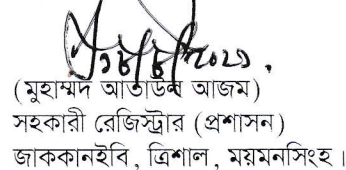 (মুহাম্মদ আতাউল আজম)
সহকারী রেজিস্ট্রার (প্রশাসন)
জাককানইবি, ত্রিশাল, ময়মনসিংহ।